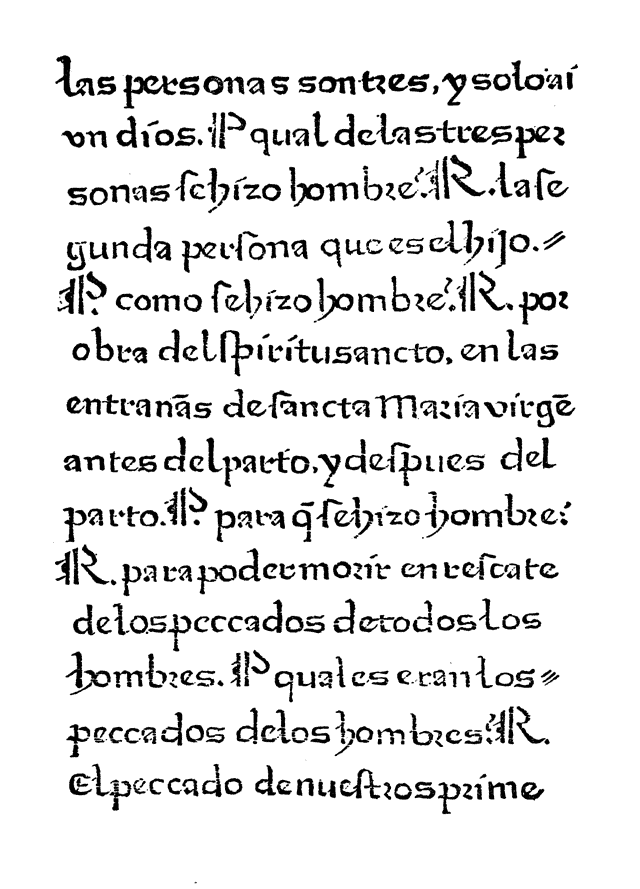 las personas son tres, y solo ai
vn dios. P qual de las tres per
sonas se hizo hombre? R. la se
gunda persona que es el hijo. =
P? como se hizo hombre? R. por
obra del spiritu sancto, en las
entranãs de sancta Maria virgẽ
antes del parto, y despues del
parto. P? para q̃ se hizo hombre?
R. para poder morir en rescate
de los peccados de todos los
hombres. P quales eran los =
peccados de los hombres? R.
El peccado de nuestros prime